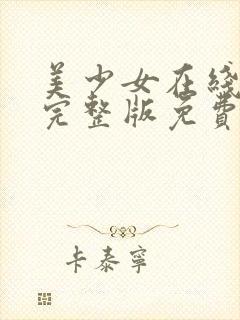 美少女在綫
完整版免費
卡泰寧